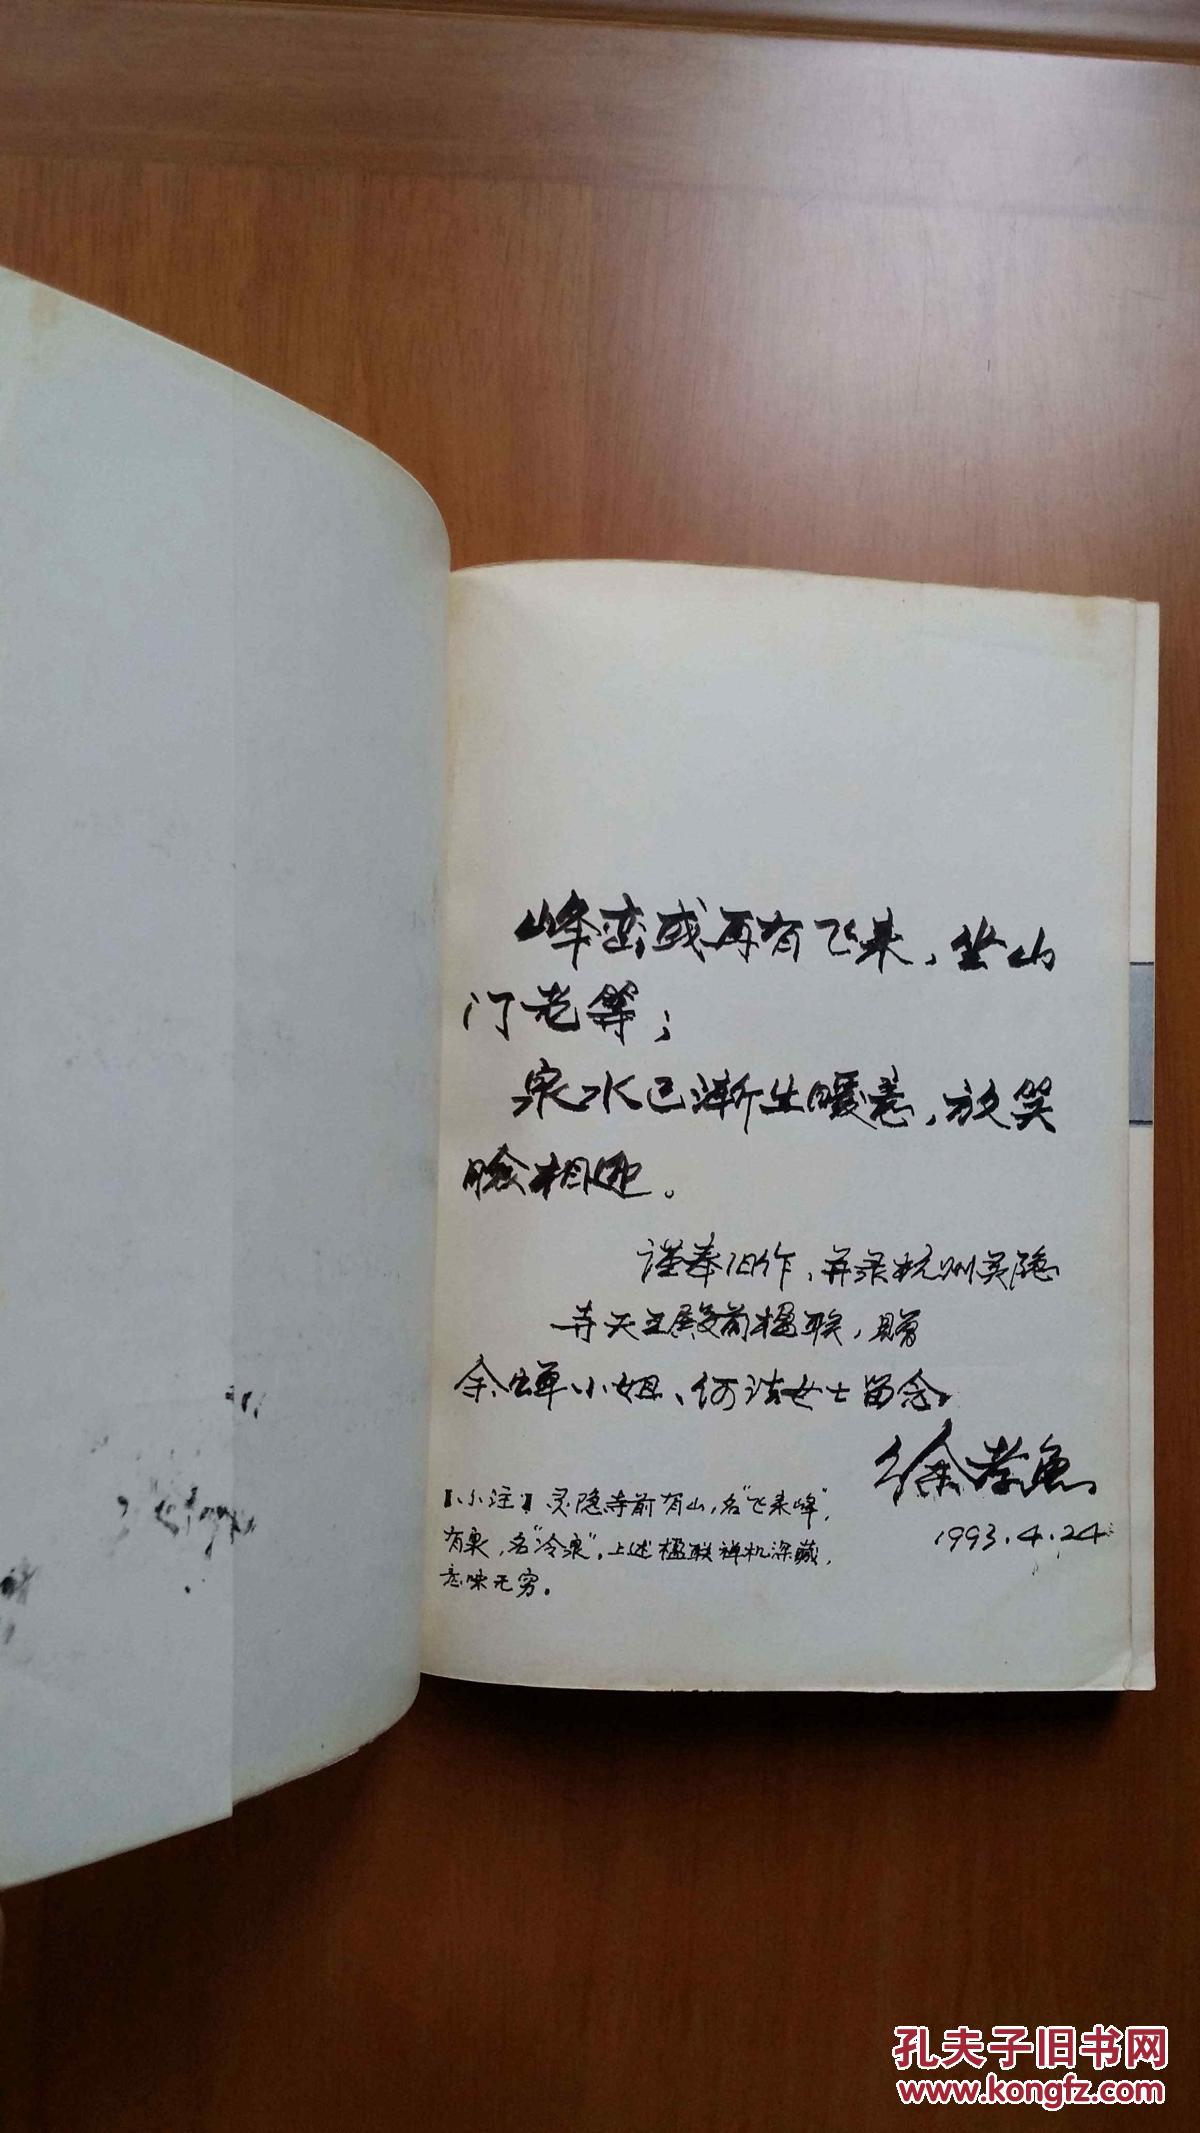 峰峦或再有飞来，坐山
门老等；
泉水已渐生暖意，放笑
脸相迎。
谨奉旧作，并录杭州灵隐
寺天王殿前楹联，赠
余蝉小姐、何洁女士留念。
徐孝鱼
1993.4.24
【小注】灵隐寺前有山，名“飞来峰”，
有泉，名“冷泉”。上述楹联禅机深藏，
意味无穷。
孔夫子旧书网
www.kongfz.com